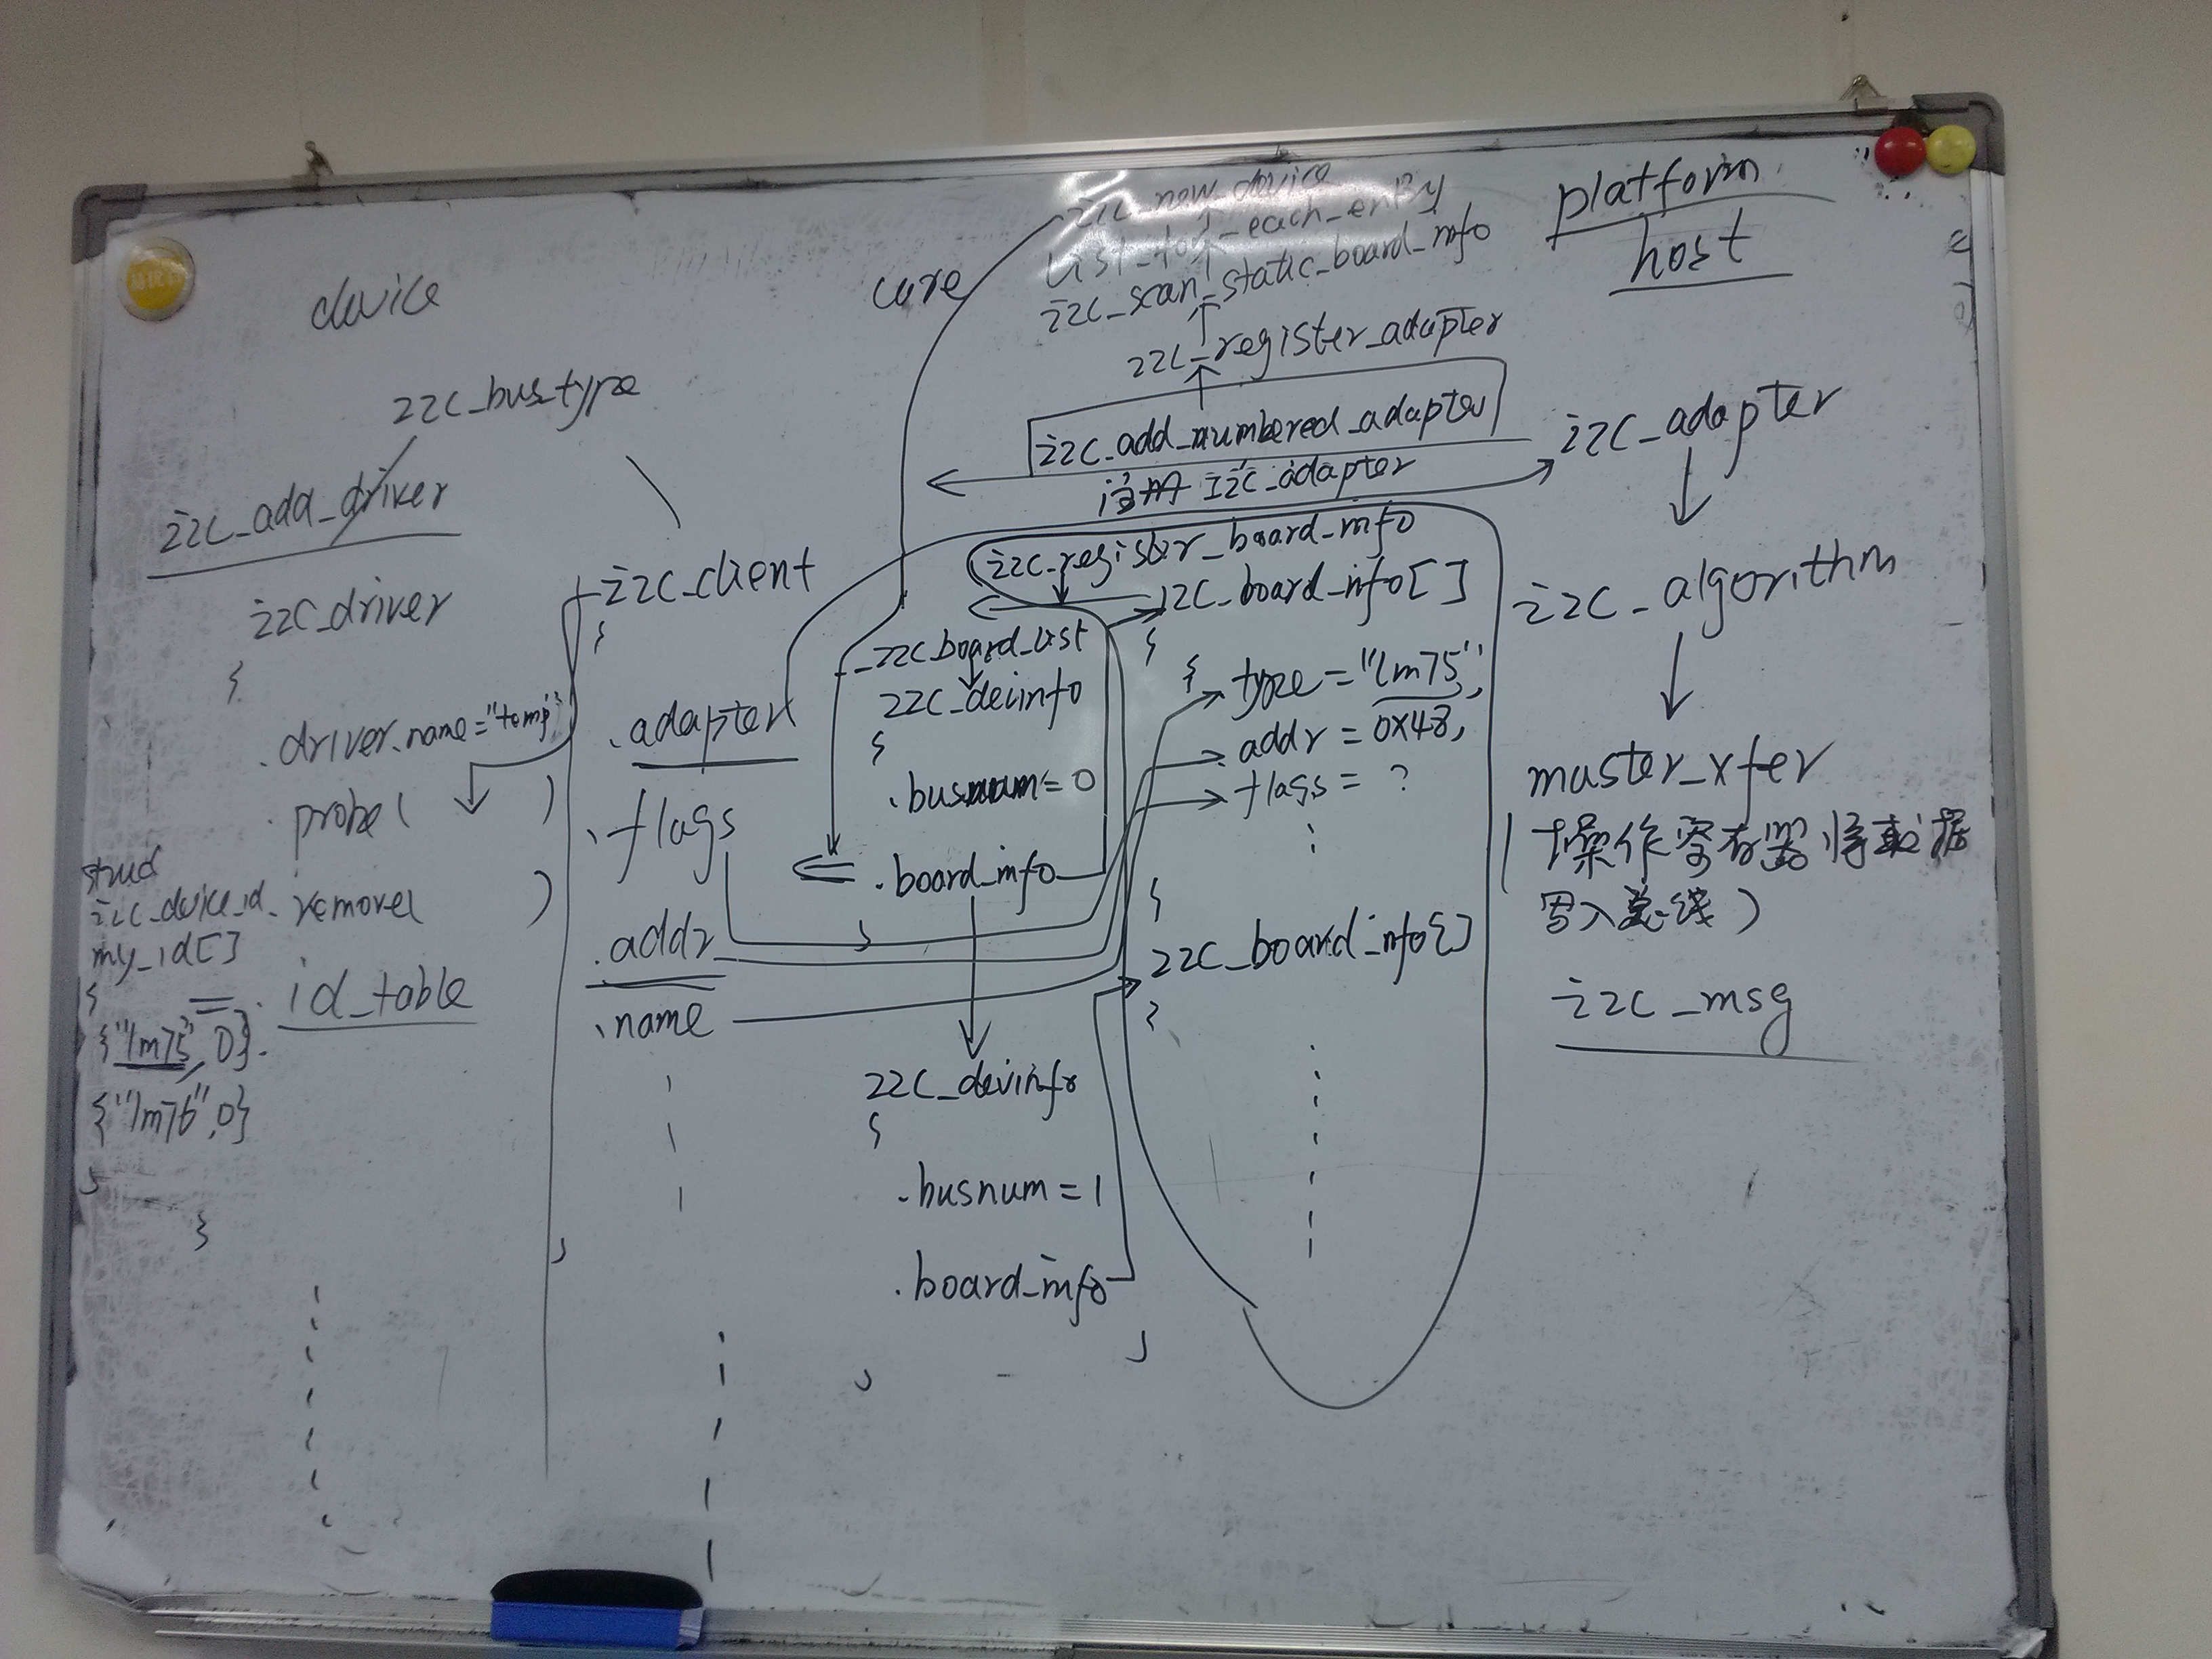 device
i2c_bus_type
i2c_add_driver
i2c_driver
{
.driver.name="temp"
.probe( )
.remove( )
.id_table
struct
i2c_device_id
my_id[]
{
{"lm75",0}.
{"lm76",0}
}
}
i2c_client
{
.adapter
.flags
.addr
.name
}
core
i2c_new_device
list_for_each_entry
i2c_scan_static_board_info
i2c_register_adapter
i2c_add_numbered_adapter
注册 I2C_adapter
i2c_register_board_info
__i2c_board_list
i2c_devinfo
{
.busnum=0
.board_info
}
i2c_devinfo
{
.busnum=1
.board_info
}
i2c_board_info[]
{
{ type="lm75",
addr=0x48,
flags=?
}
i2c_board_info[]
}
platform
host
i2c_adapter
i2c_algorithm
master_xfer
(操作寄存器将数据
写入总线)
i2c_msg